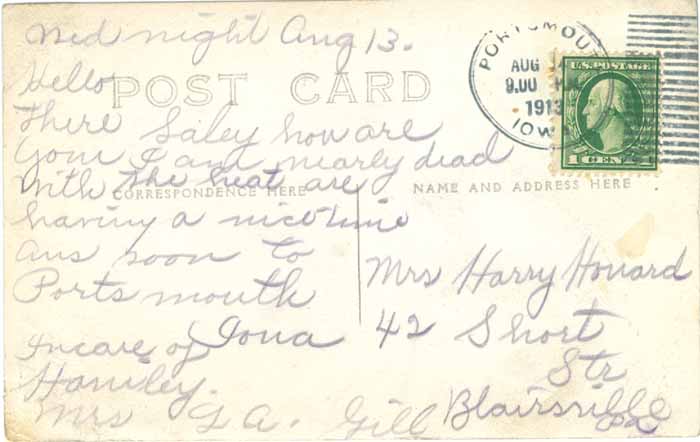 Wed night Aug 13.
Hello
POST CARD
There Saley how are
you I am nearly dead
with the heat are
CORRESPONDENCE HERE
having a nice time
ans soon to
Portsmouth
Iowa
in care of
Mrs
A. Gill
NAME AND ADDRESS HERE
Mrs Harry Howard
42 Short
Str
Blairsville
Pa
PORTSMOUTH
AUG
9.00
1913
IOWA
U.S. POSTAGE
1 CENT